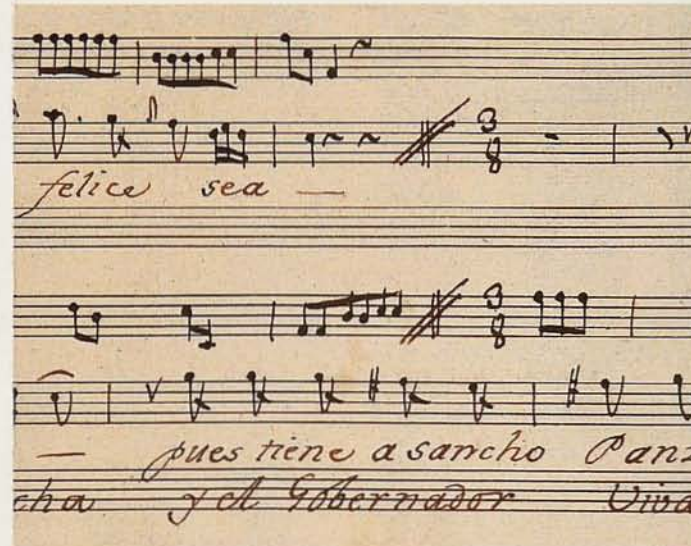 felice sea —
— pues tiene a sancho Panz
cha y el Gobernador Viva